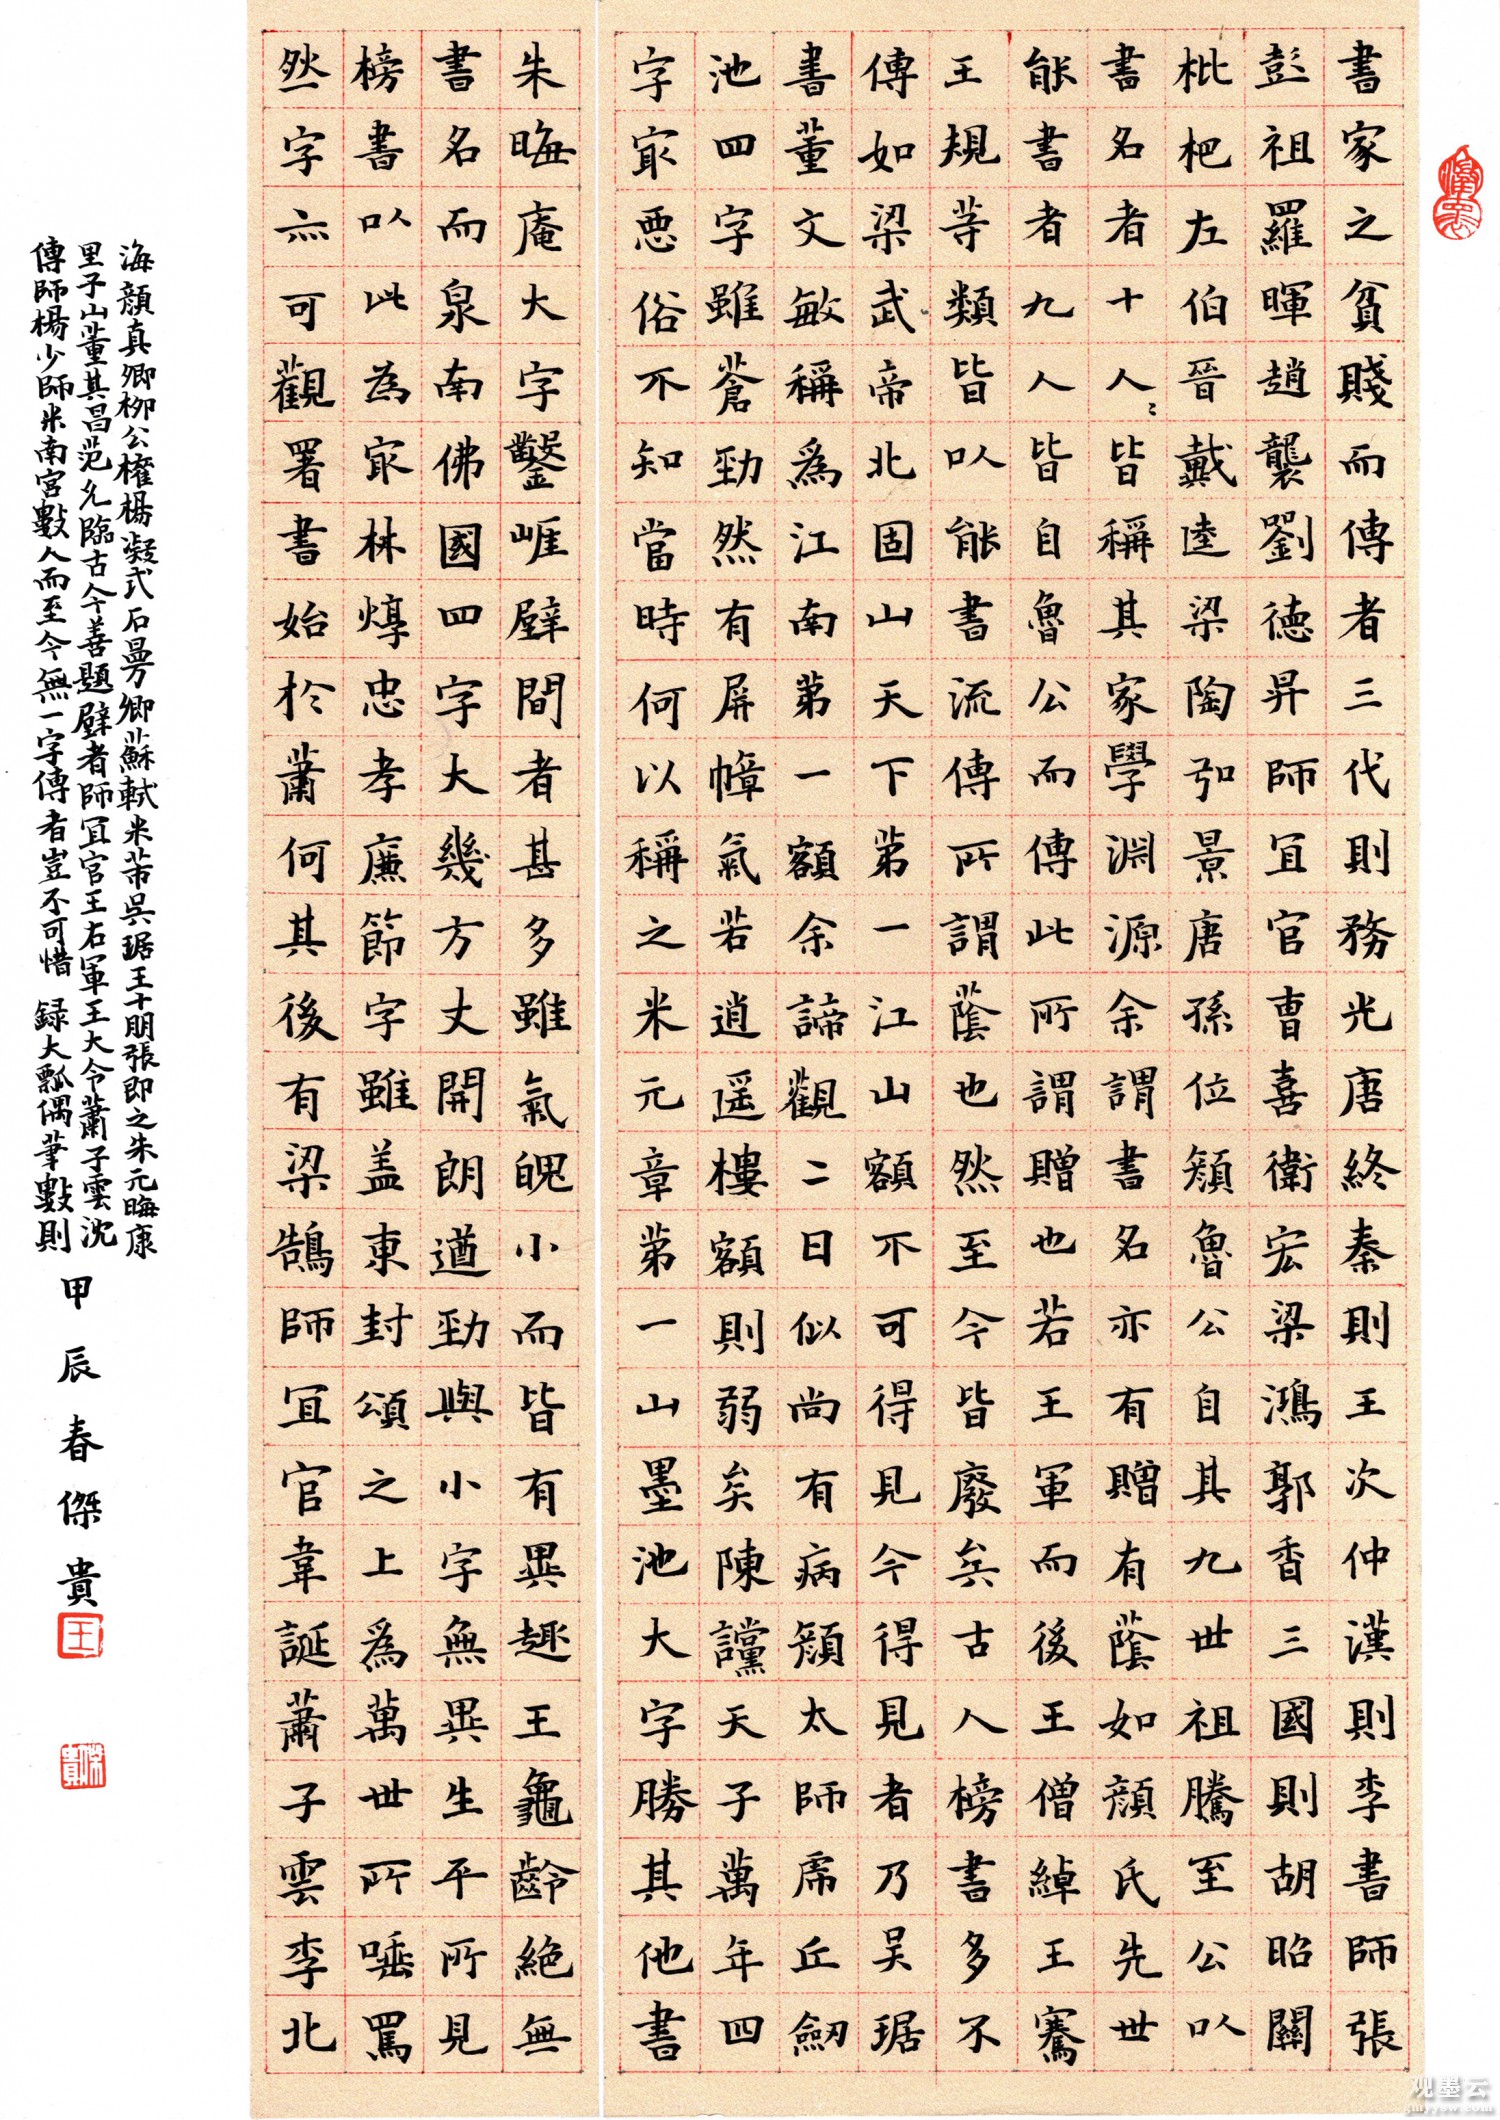 書家之貧賤而傳者三代則務光唐終秦則王次仲漢則李書師張
彭祖羅暉趙襲劉德昇師冝官曹喜衛宏梁鴻郭香三國則胡昭關
枇杷左伯晉戴逵梁陶弘景唐孫位頵魯公自其九世祖騰至公以
書名者十人人皆稱其家學淵源余謂書名亦有贈有蔭如顏氏先世
能書者九人皆自魯公而傳此所謂贈也若王右軍而後王僧綽王騫
王規等類皆以能書流傳所謂蔭也然至今皆廢矣古人榜書多不
傳如梁武帝北固山天下第一江山額不可得見今得見者乃吴琚
書董文敏稱為江南第一額余諦觀二日似尚有病頵太師虎丘劒
池四字雖蒼勁然有屏幛氣若逍遥樓額則弱矣陳讜天子萬年四
字冣惡俗不知當時何以稱之米元章第一山墨池大字勝其他書
朱晦庵大字鑿崕壁間者甚多雖氣魄小而皆有異趣王龜齡絕無
書名而泉南佛國四字大幾方丈開朗遒勁與小字無異生平所見
榜書以此為冣林焞忠孝廉節字雖盖東封頌之上為萬世所唾罵
然字亦可觀署書始於蕭何其後有梁鵠師冝官韋誕蕭子雲李北
海顏真卿柳公權楊凝式石曼卿蘇軾米芾吳琚王十朋張即之朱元晦康
里子山董其昌范允臨古今善題壁者師冝官王右軍王大令蕭子雲沈
傳師楊少師米南宮數人而至今無一字傳者豈不可惜 録大瓢偶筆數則
甲辰春傑貴
王
傑貴
观墨云